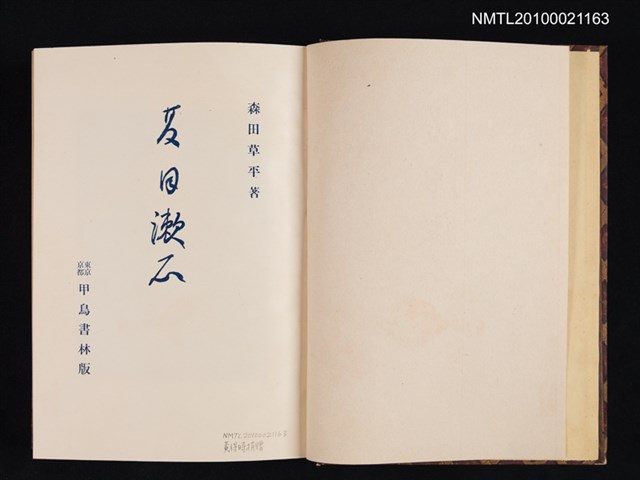 NMTL20100021163
森田草平著
夏目漱石
東京
京都
甲鳥書林版
NMTL20100021163